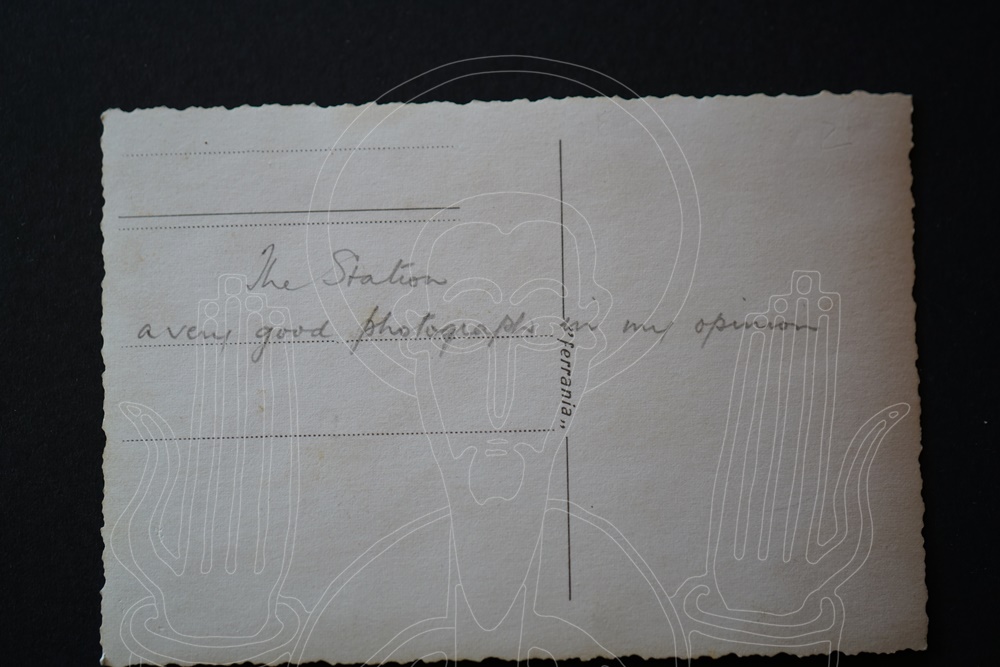 The Station
a very good photograph in my opinion
"ferrania"